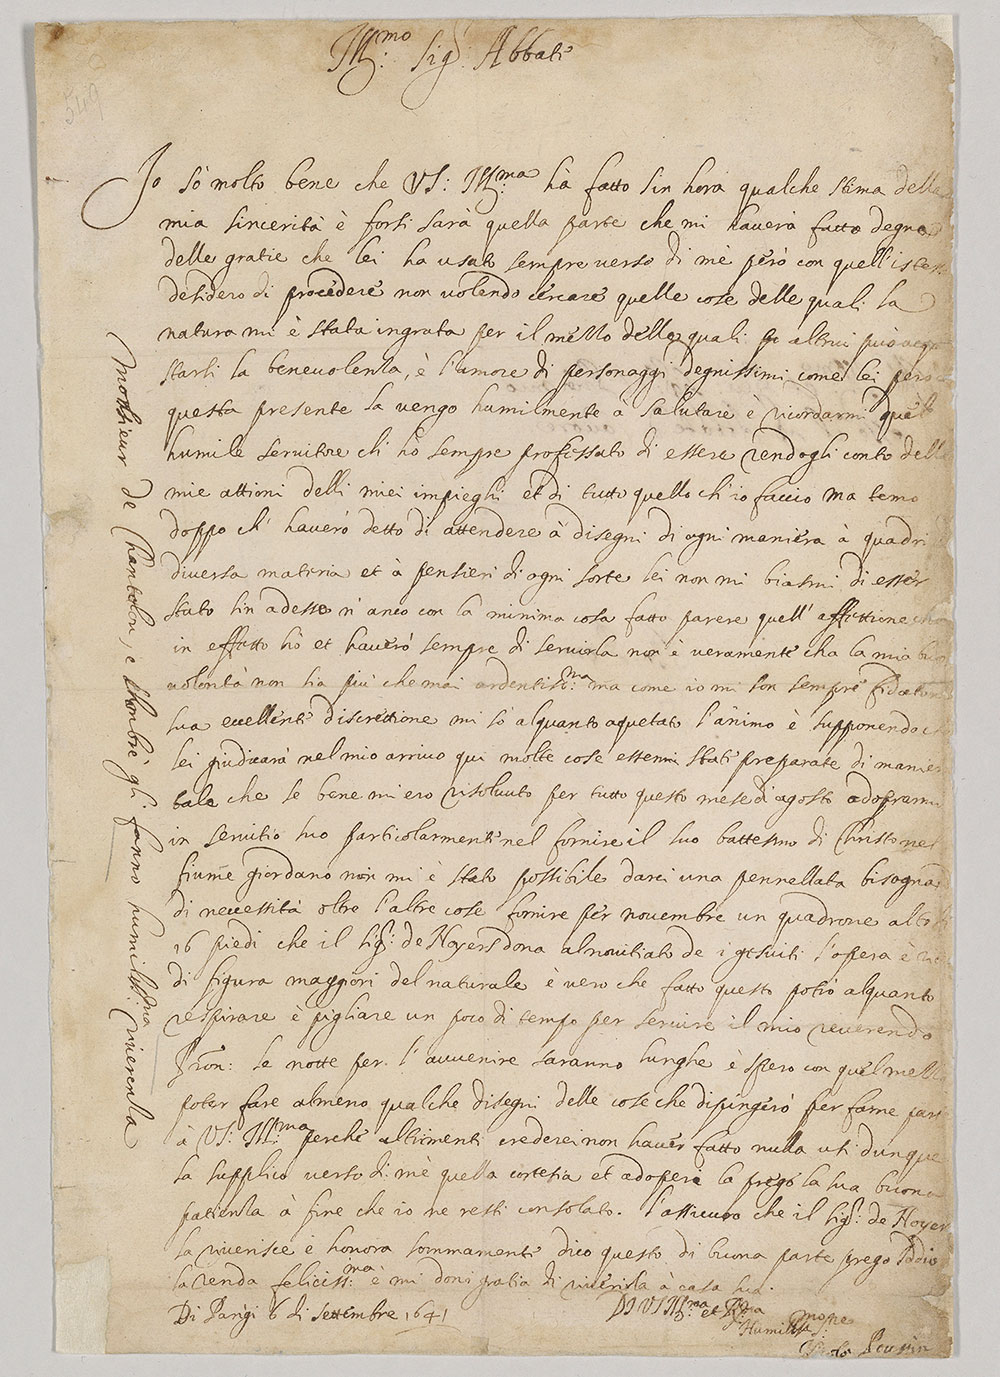 Ill:mo Sig: Abbate
Io sò molto bene che VS: Ill:ma hà fatto sin hora qualche stima della
mia sincerità è forsi sarà quella parte che mi haverà fatto degno
delle gratie che lei ha usato sempre verso di mè però con quell'
desidero di procedere non volendo cercare quelle cose delle quali la
natura mi è stata ingrata per il mezzo delle quali altrui può
starsi la benevolenza, è l'amore di personaggi degnissimi come lei però
questa presente la vengo humilmente à salutare è ricordarmi quel
humile servitore ch ho sempre professato di essere rendogli conto delle
mie attioni delli miei impieghi et di tutto quello ch'io faccio ma temo
doppo ch' haverò detto di attendere à disegni di ogni maniera à quadri
diversa materia et à pensieri di ogni sorte lei non mi biasmi di esser
stato sin adesso n' anco con la minima cosa fatto parere quell' affettione
in effetto hò et haverò sempre di servirla non è veramente cha la mia
volontà non sia più che mai ardentiss:ma ma come io mi son sempre fidato
sua eccellente discrettione mi sò alquanto aquetato l'ànimo è supponendo
lei giudicarà nel mio arrivo qui molte cose essermi state preparate di manier
tale che se bene mi ero risoluuto per tutto questo mese di agosto adoprarmi
in servitio suo particolarmente nel fornire il suo battesmo di Christo nel
fiume giordano non mi è stato possibile darci una pennellata bisogna
di necessità oltre l'altre cose fornire per novembre un quadrone alto
16 piedi che il sig: de Noyers dona al novitiato de i gesuiti l'opera è
di figura maggiori del naturale è vero che fatto questo potrò alquanto
respirare è pigliare un poco di tempo per servire il mio reverendo
Pron: le notte per l'avvenire saranno lunghe è spero con quel mezzo
poter fare almeno qualche disegni delle cose che dipingerò per farne part
à VS: Ill:ma perche altrimenti crederei non haver fatto nulla usi dunque
la supplico verso di mè quella cortesia et adoperi la prego la sua buona
patienza à fine che io ne resti consolato. l'assicuro che il sig: de Noyer
la riverisce è honora sommamente dico questo di buona parte prego Iddio
la renda feliciss:ma è mi doni gratia di riverirla à casa sua.
Di Parigi 6 di settembre 1641
Di VS Ill:ma et R:ma
Humiliss:
Poussin
Monsieur de Chantelou, e sonbre gli fanno humiliss:ma riverenza
549